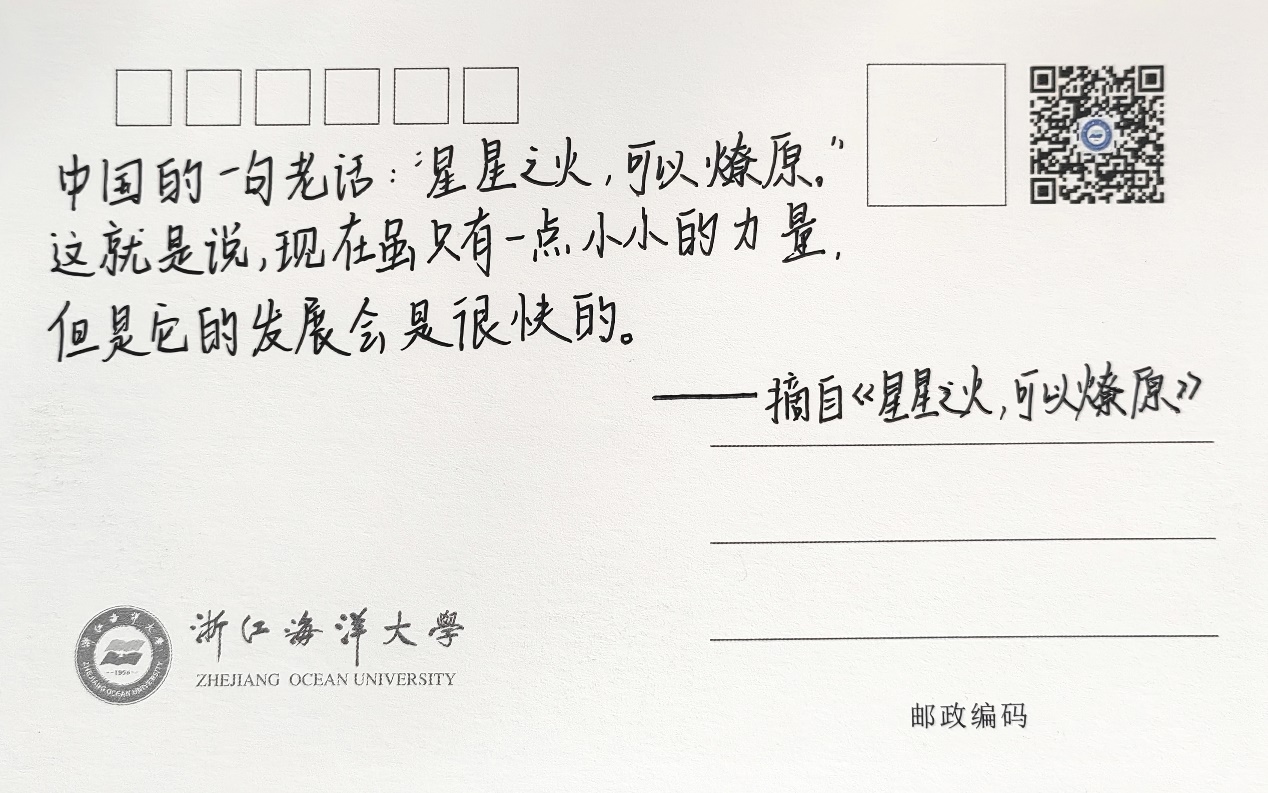 中国的一句老话：“星星之火，可以燎原。”
这就是说，现在虽只有一点小小的力量，
但是它的发展会是很快的。
——摘自《星星之火，可以燎原》
浙江海洋大學
ZHEJIANG OCEAN UNIVERSITY
浙江海洋大學
1958
ZHEJIANG OCEAN UNIVERSITY
邮政编码